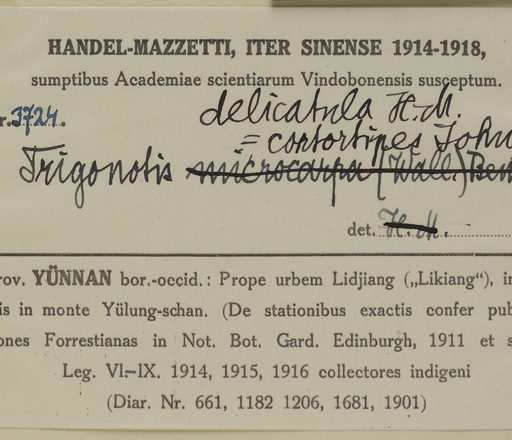 HANDEL-MAZZETTI, ITER SINENSE 1914-1918,
sumptibus Academiae scientiarum Vindobonensis susceptum.
r. 3724.
delicatula H.M.
= contortipes John
Trigonotis microcarpa (Wall.) Ben
det. H. M.
rov. YÜNNAN bor.-occid.: Prope urbem Lidjiang („Likiang“), in
is in monte Yülung-schan. (De stationibus exactis confer pub
ones Forrestianas in Not. Bot. Gard. Edinburgh, 1911 et s
Leg. VI.-IX. 1914, 1915, 1916 collectores indigeni
(Diar. Nr. 661, 1182 1206, 1681, 1901)